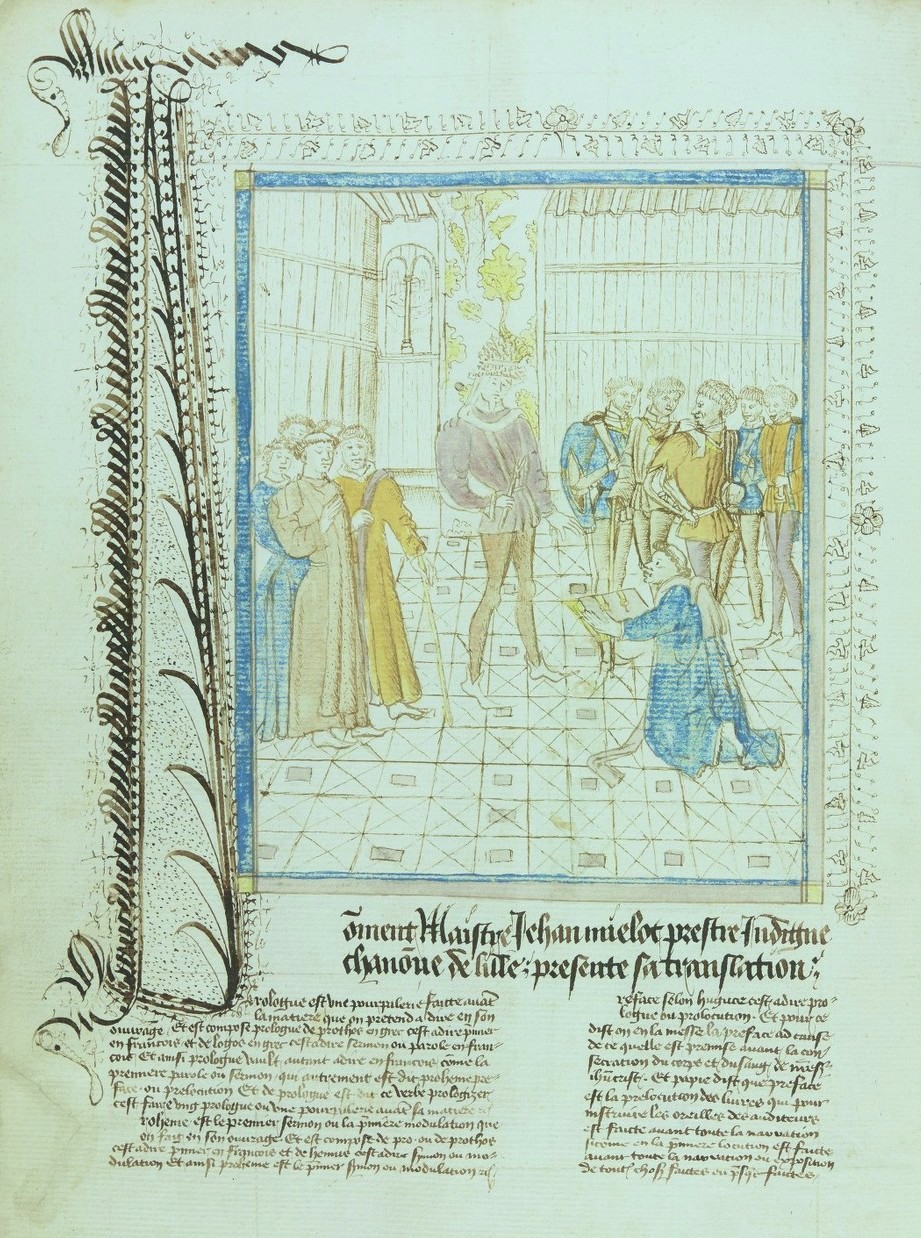 õment Maistre Jehan mielot prestre Indigne
chanoñe de lille: presente sa translation:
Prologue est vne pourparlerie faicte auãt
la matiere que on pretend a dire en son
ouuraige. Et est compose prologue de prothos en grec cest adire pimier
en francois et de logos en grec cest adire sermon ou parole en fran-
cois Et ainsi prologue vault autant adire en francois cõme la
premiere parole ou sermon qui autrement est dit proheme pre
face ou prelocution Et de prologue est dit ce verbe prologizer
cest faire vng prologue ou vne pourparlerie auãt sa matiere
Proheme est le premier sermon ou la pmiere modulation que
on faict en son ouuraige Et est compost de pro ou de prothos
cest adire pimier en francois et de hemus cest adire smon ou mo-
dulation Et ainsi proheme est le pmier smon ou modulation
reface selon huguce cest adire pro-
logue ou prolocution. Et pour ce
dist on en la messe la preface ad cause
de ce quelle est premise auant la con
secration du corps et du sang de
ihucrist. Et papie dist que preface
est la prelocution des liures qui pour
instruire les oreilles des auditeurs
est faicte auant toute la narration
sicome en la pmiere locution est faicte
auant toute la narration ou exposition
de toutes choses faictes ou